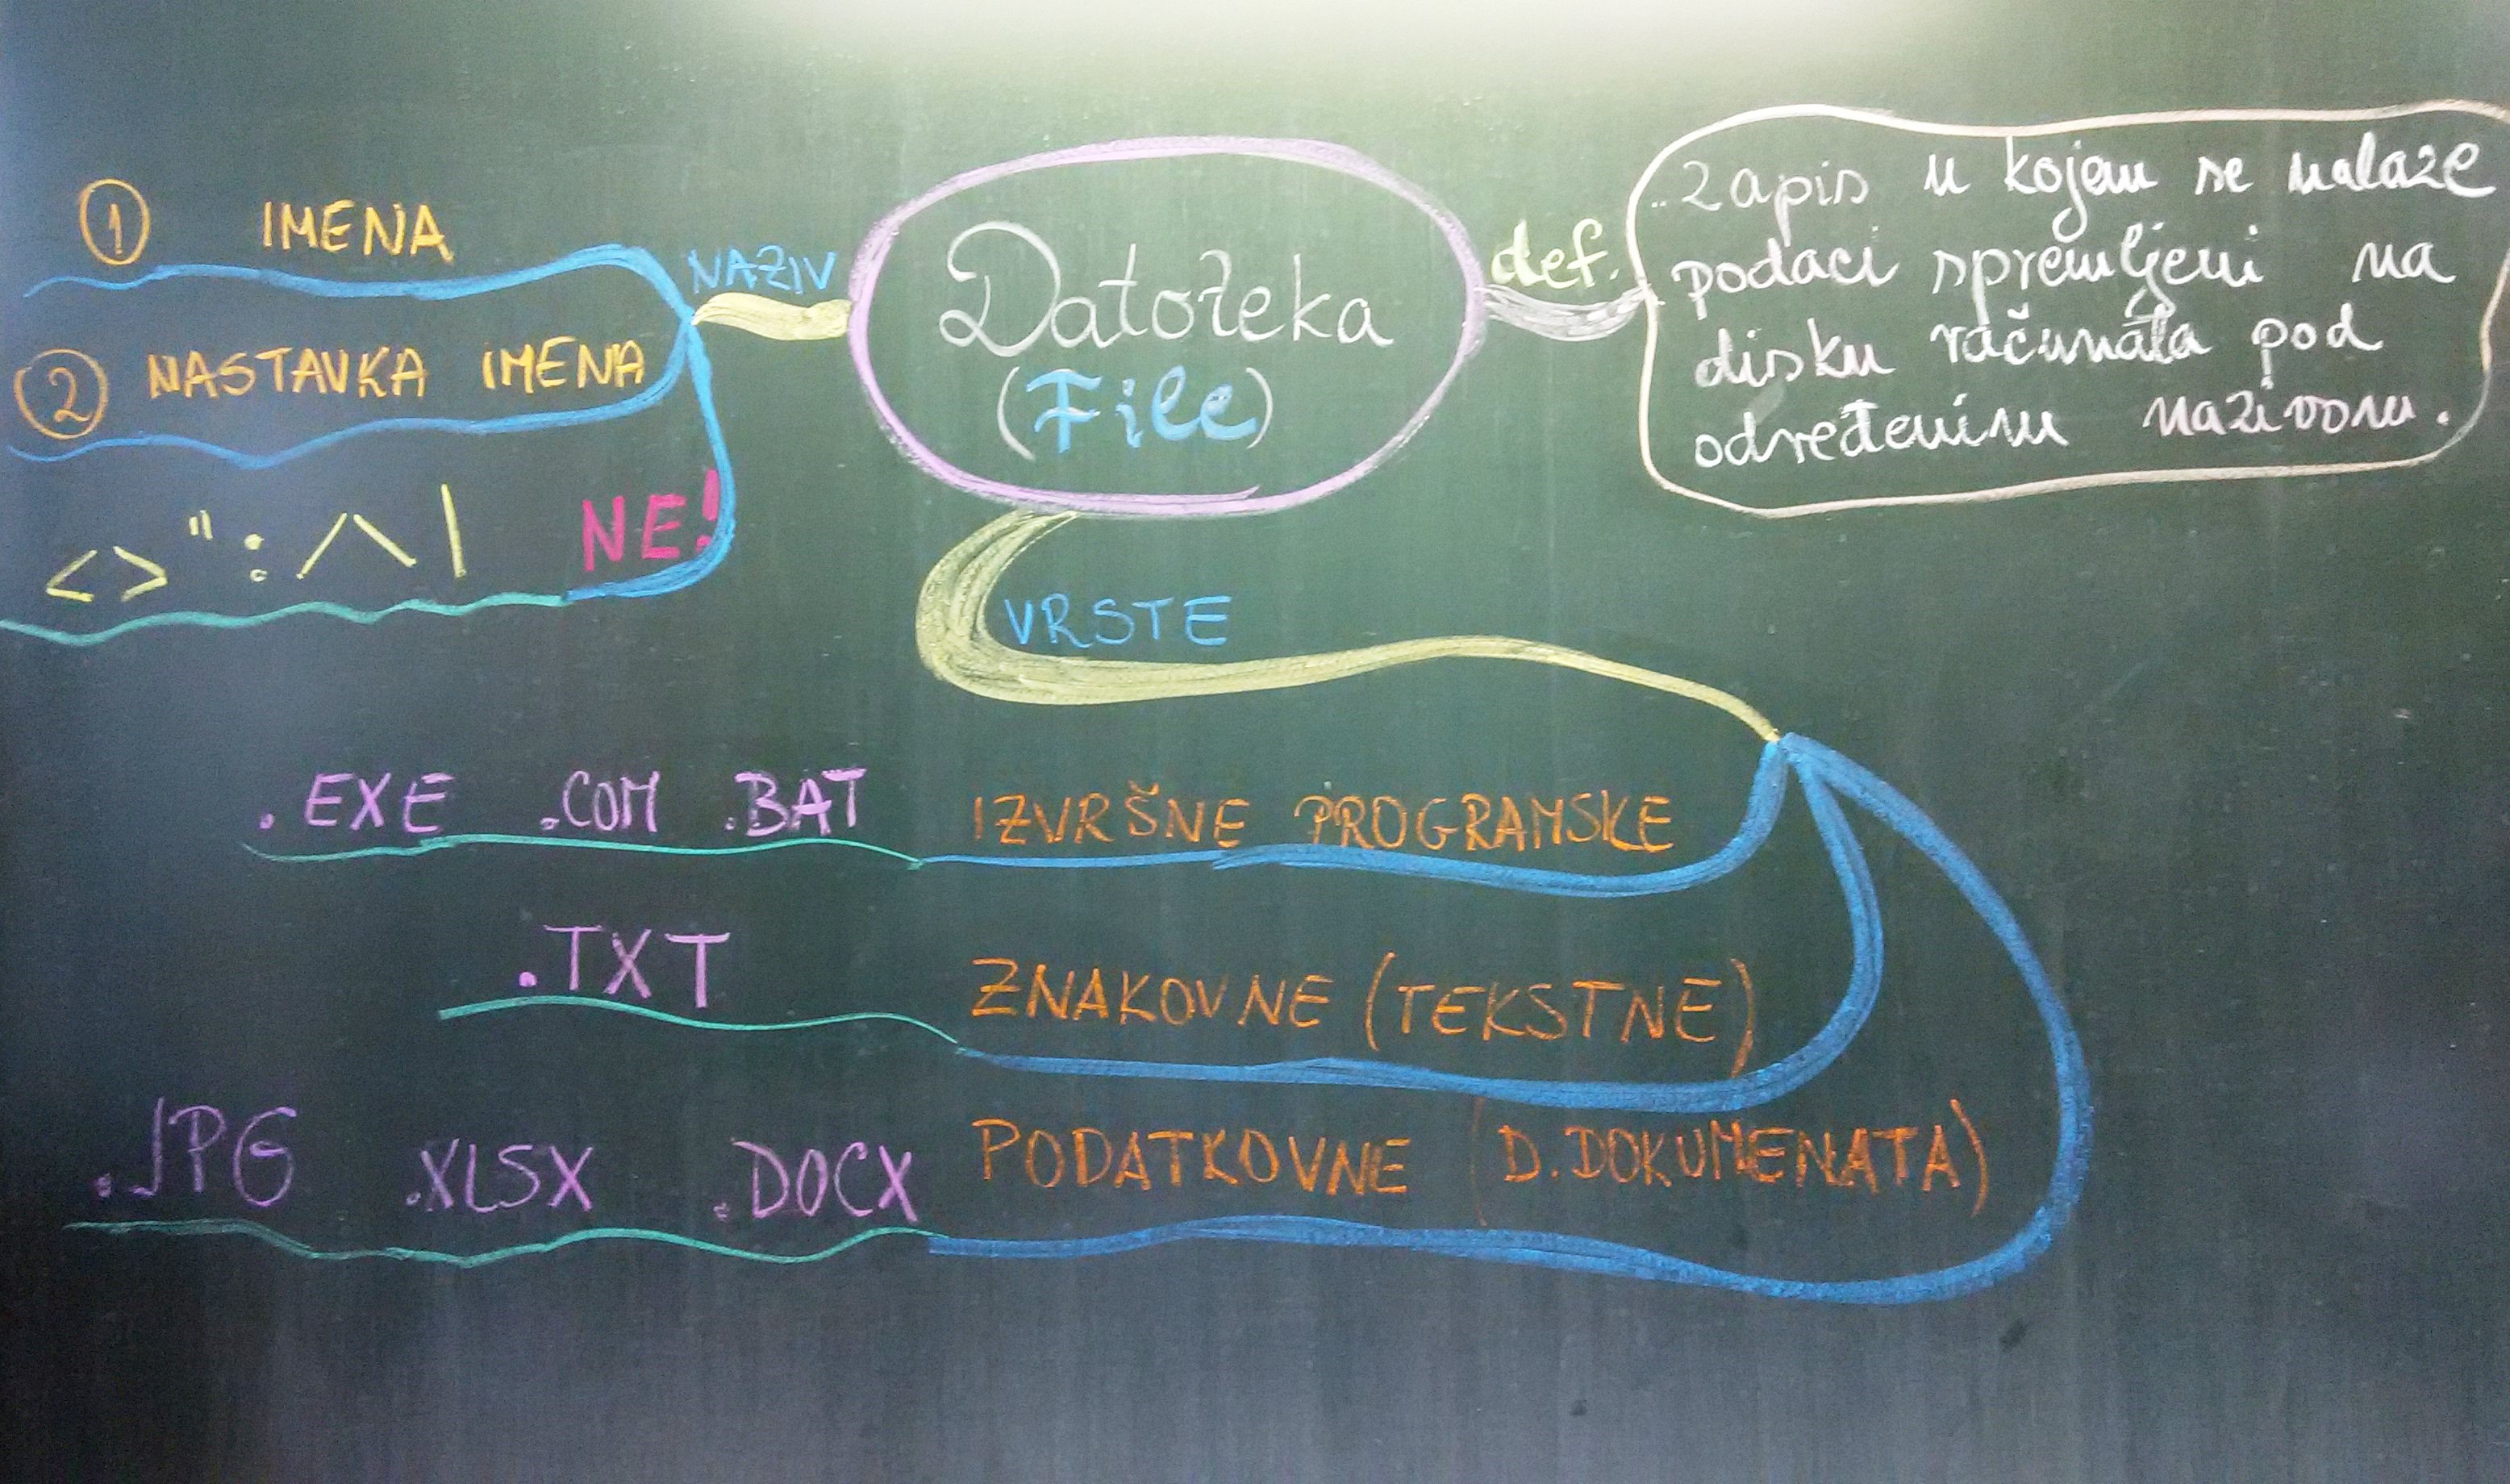 Datoteka
(File)
def.
..zapis u kojem se nalaze
podaci spremljeni na
disku računala pod
određenim nazivom.
NAZIV
① IMENA
② NASTAVKA IMENA
<> " : / \ | NE!
VRSTE
.EXE .COM .BAT IZVRŠNE PROGRAMSKE
.TXT ZNAKOVNE (TEKSTNE)
.JPG .XLSX .DOCX PODATKOVNE (D.DOKUMENATA)